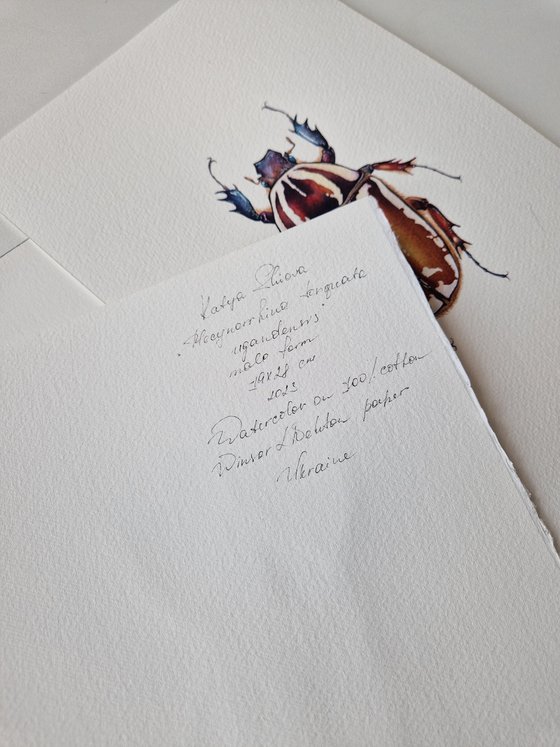 Katya Shiova
"Mecynorrhina torquata
ugandensis"
male form
19x28 cm
2023
Watercolor on 100% cotton
Winsor & Newton paper
Ukraine